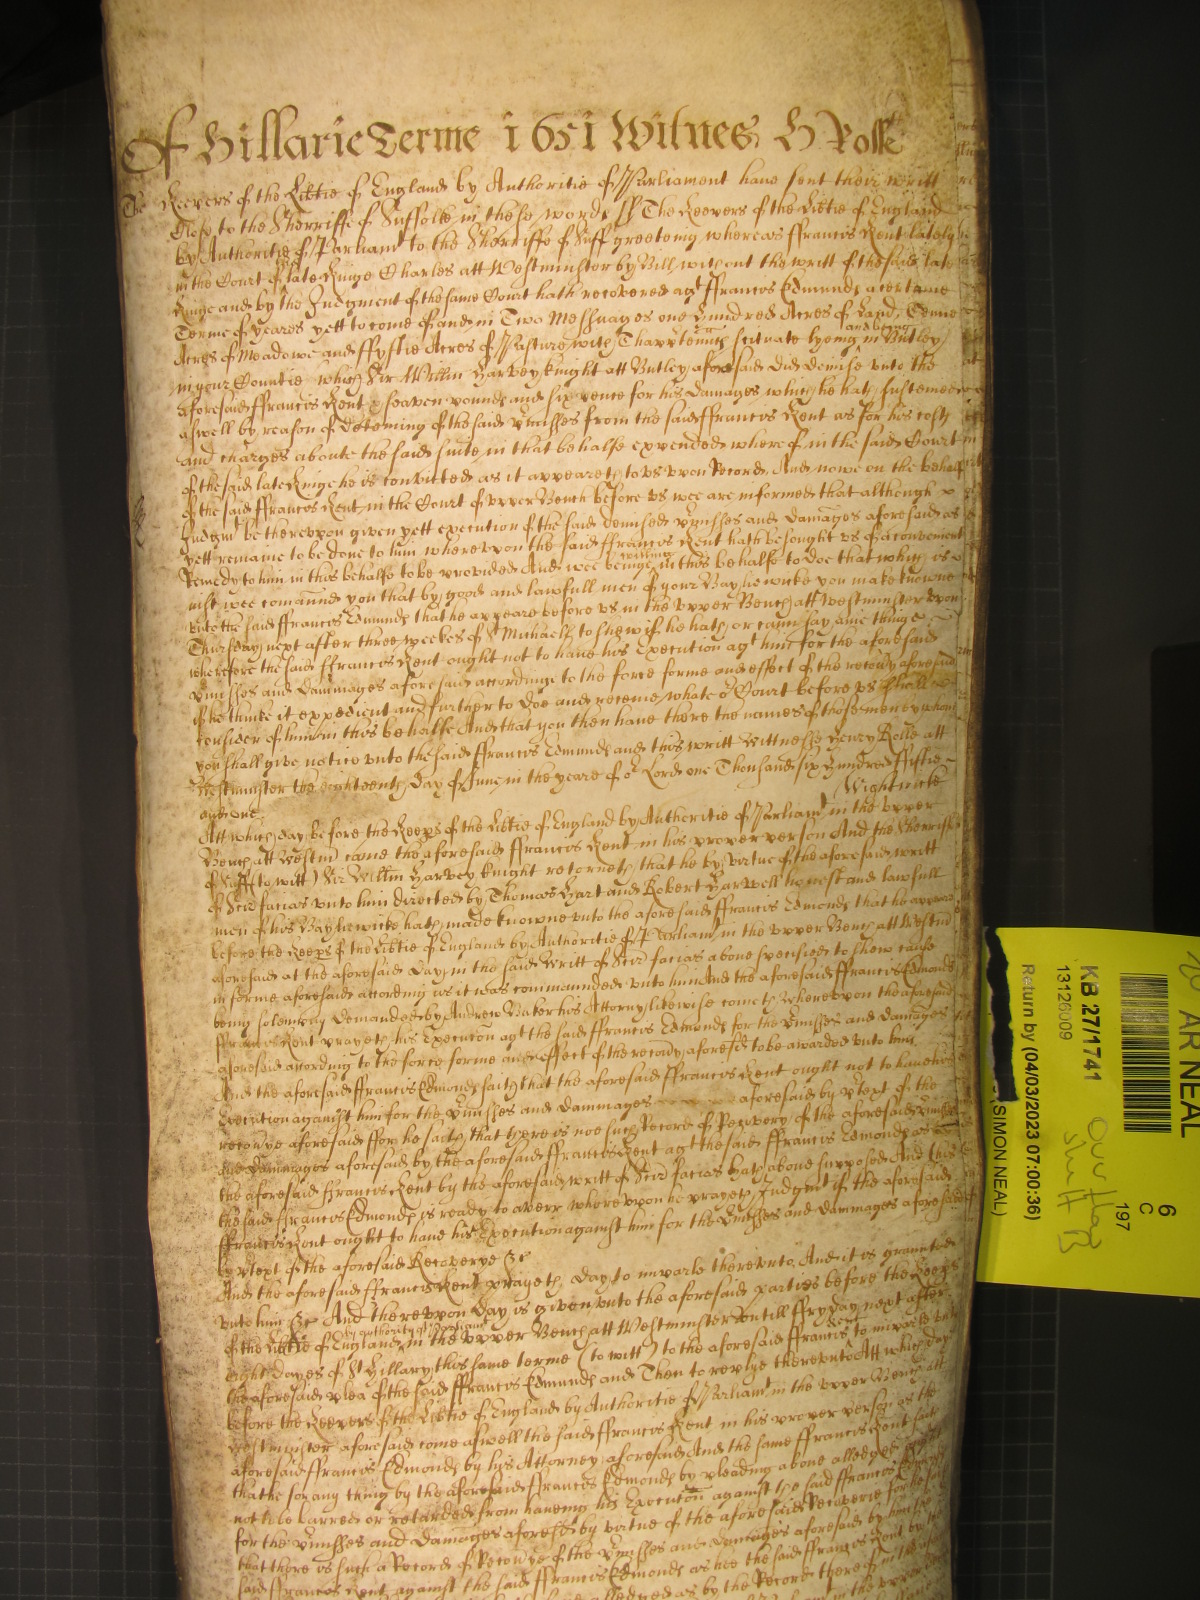 Of Hillarie Terme 1651 Witnes H Rolle
The Keepers of the Libtie of England by Authoritie of Parliament have sent their writt
close to the Sherriffe of Suffolke in these words ss The Keepers of the Libtie of England
by Authoritie of Parliamt to the Sherriffe of Suff greeteing whereas ffrancis Kent lately
in the Court of late Kinge Charles att Westminster by Bill without the writt of the said late
Kinge and by the Judgment of the same Court hath recovered agt ffrancis Edmunds a certaine
Terme of yeares yett to come of and in Two Messuages one hundred Acres of Land, Tenne
Acres of Meadowe and ffyftie Acres of Pasture with Thapprtennces scituate lyeing and being in Butley
in your Countie which Sir Willm Harvey knight att Butley aforesaid did demise unto the
aforesaid ffrancis Kent & seaven pounds and six pence for his Damages which he hath susteined
aswell by reason of deteining of the said Prmisses from the said ffrancis Kent as for his costs
and charges aboute the said suite in that behalfe expended whereof in the said Court
of the said late Kinge he is convicted as it appeareth to us upon Record. And nowe on the behalf
of the said ffrancis Kent in the Court of upper Bench before us wee are informed that although
Judgmt be thereupon given yett execution of the said demised Prmisses and damages aforesaid as
yett remaine to be done to him whereupon the said ffrancis Kent hath besought us of a convenient
Remedy to him in this behalfe to be provided And wee beinge willing in this behalfe to doe that which is
just wee comaund you that by good and lawfull men of your Bayliewicke you make knowne
unto the said ffrancis Edmunds that he appeare before us in the upper Bench att Westminster upon
Thursday next after three weekes of St Michaell to shew if he hath or can say anie thinge
wherefore the said ffrancis Kent ought not to have his Execution agt him for the aforesaid
Prmisses and Dammages aforesaid accordinge to the force forme and effect of the recovy aforesaid
if he thinke it expedient and further to doe and receive what or Court before us shall
consider of him in this behalfe And that you then have there the names of those men by whom
you shall give notice unto the said ffrancis Edmunds and this writt Wittnesse Henry Rolle att
Westminster the eighteenth day of June in the yeare of or Lord one Thousand six hundred fiftie
and one. Wightwicke
Att which day before the Keeps of the Libtie of England by Authoritie of Parliamt in the upper
Bench att Westmr came the aforesaid ffrancis Kent in his proper person And the Sherriffe
of Suff (to witt) Sir Willm Harvey knight retorneth that he by virtue of the aforesaid writt
of Scire facias unto him directed by Thomas Hart and Robert Harwell honest and lawfull
men of his Bayliewicke hath made knowne unto the aforesaid ffrancis Edmonds that he appeare
before the Keeps of the Libtie of England by Authoritie of Parliamt in the upper Bench att Westmr
aforesaid at the aforesaid day in the said Writt of Scire facias above specified to shew cause
in forme aforesaid according as it was commaunded unto him And the aforesaid ffrancis Edmonds
being solemnly demanded by Andrew his Attorny likewise cometh Whereupon the aforesaid
ffrancis Kent prayeth his Execution agt the said ffrancis Edmonds for the Prmisses and damages
aforesaid according to the force forme and effect of the recovy aforesd to be awarded unto him
And the aforesaid ffrancis Edmonds saith that the aforesaid ffrancis Kent ought not to have his
Execution against him for the Prmisses and dammages aforesaid by prtext of the
recovye aforesaid ffor he saith that there is noe such Record of Recovery of the aforesaid Prmisses
and Dammages aforesaid by the aforesaid ffrancis Kent agt the said ffrancis Edmonds as
the aforesaid ffrancis Kent by the aforesaid writt of Scire facias hath above supposed And this
the said ffrancis Edmonds is ready to averr whereupon he prayeth Judgmt if the aforesaid
ffrancis Kent ought to have his Execution against him for the Prmisses and dammages aforesaid
by prtext of the aforesaid Recoverye &c
And the aforesaid ffrancis Kent prayeth day to imparle thereunto. And it is graunted
unto him &c And thereupon day is given unto the aforesaid parties before the Keeps
of the Libtie of England by authority of Parliamt in the upper Bench att Westminster untill ffryday next after
eight dayes of St Hillary this same terme (to witt) to the aforesaid ffrancis Kent to imparle unto
the aforesaid plea of the said ffrancis Edmunds and Then to replye thereunto Att which day
before the Keepers of the Libtie of England by Authoritie of Parliamt in the upper Bench att
Westminster aforesaid come aswell the said ffrancis Kent in his proper person as the
aforesaid ffrancis Edmonds by his Attorney aforesaid And the same ffrancis Kent saith
that he for any thing by the aforesaid ffrancis Edmonds by pleading above alledged ought
not to be barred or retarded from haveing his Execution against the said ffrancis Edmonds
for the Prmisses and Dammages aforesd by virtue of the aforesaid Recoverie for he saith
that there is such a Record of Recovye of the Prmisses and damages aforesaid by him the
said ffrancis Kent against the said ffrancis Edmonds as hee the said ffrancis Kent by the
AR NEAL
6
C
197
KB 27/1741
13126009
Return by (04/03/2023 07:00:36)
SIMON NEAL)